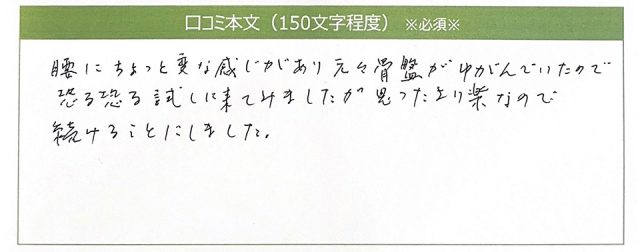 口コミ本文（150文字程度）※必須※
腰にちょっと変な感じがあり元々骨盤がゆがんでいたので
恐る恐る試しに来てみましたが思ったより楽なので
続けることにしました。